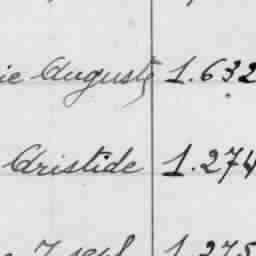 ie Auguste 1.632
Aristide 1.274
1.275